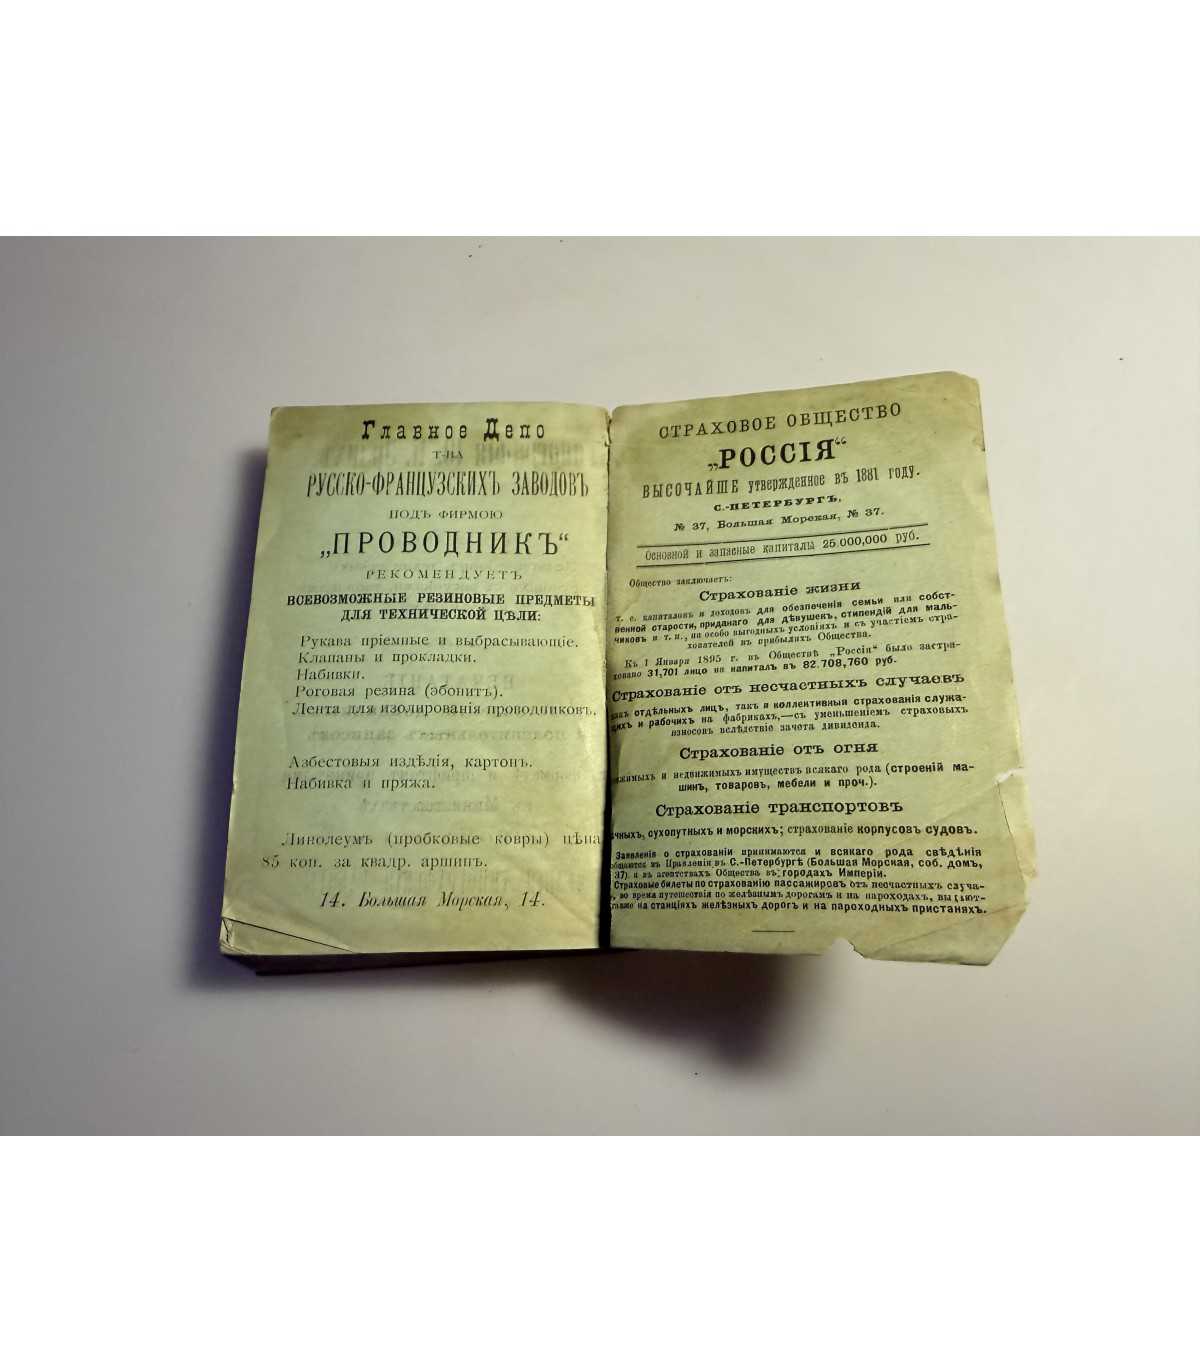 Главное Депо
Т-ВА
РУССКО-ФРАНЦУЗСКИХЪ ЗАВОДОВЪ
ПОДЪ ФИРМОЮ
„ПРОВОДНИКЪ“
РЕКОМЕНДУЕТЪ
ВСЕВОЗМОЖНЫЕ РЕЗИНОВЫЕ ПРЕДМЕТЫ
ДЛЯ ТЕХНИЧЕСКОЙ ЦѢЛИ:
Рукава пріемные и выбрасывающіе.
Клапаны и прокладки.
Набивки.
Роговая резина (эбонитъ).
Лента для изолированія проводниковъ.
Азбестовыя издѣлія, картонъ.
Набивка и пряжа.
Линолеумъ (пробковые ковры) цѣна
85 коп. за квадр. аршинъ.
14. Большая Морская, 14.
СТРАХОВОЕ ОБЩЕСТВО
„РОССІЯ“
ВЫСОЧАЙШЕ утвержденное въ 1881 году.
С.-ПЕТЕРБУРГЪ,
№ 37, Большая Морская, № 37.
Основной и запасные капиталы 25.000,000 руб.
Общество заключаетъ:
Страхованіе жизни
т. е. капиталовъ и доходовъ для обезпеченія семьи или собст-
венной старости, приданаго для дѣвушекъ, стипендій для маль-
чиковъ и т. п., на особо выгодныхъ условіяхъ и съ участіемъ стра-
хователей въ прибыляхъ Общества.
Къ 1 Января 1895 г. въ Обществѣ „Россія“ было застра-
ховано 31,701 лицо на капиталъ въ 82.708,760 руб.
Страхованіе отъ несчастныхъ случаевъ
отдѣльныхъ лицъ, такъ и коллективныя страхованія служа-
щихъ и рабочихъ на фабрикахъ,—съ уменьшеніемъ страховыхъ
взносовъ вслѣдствіе зачета дивиденда.
Страхованіе отъ огня
и недвижимыхъ имуществъ всякаго рода (строеній ма-
шинъ, товаровъ, мебели и проч.).
Страхованіе транспортовъ
сухопутныхъ и морскихъ; страхованіе корпусовъ судовъ.
Заявленія о страхованіи принимаются и всякаго рода свѣдѣнія
въ Правленіи въ С.-Петербургѣ (Большая Морская, соб. домъ,
37). и въ агентствахъ Общества въ городахъ Имперіи.
Страховые билеты по страхованію пассажировъ отъ несчастныхъ случа-
во время путешествія по желѣзнымъ дорогамъ и на пароходахъ, выдают-
на станціяхъ желѣзныхъ дорогъ и на пароходныхъ пристаняхъ.